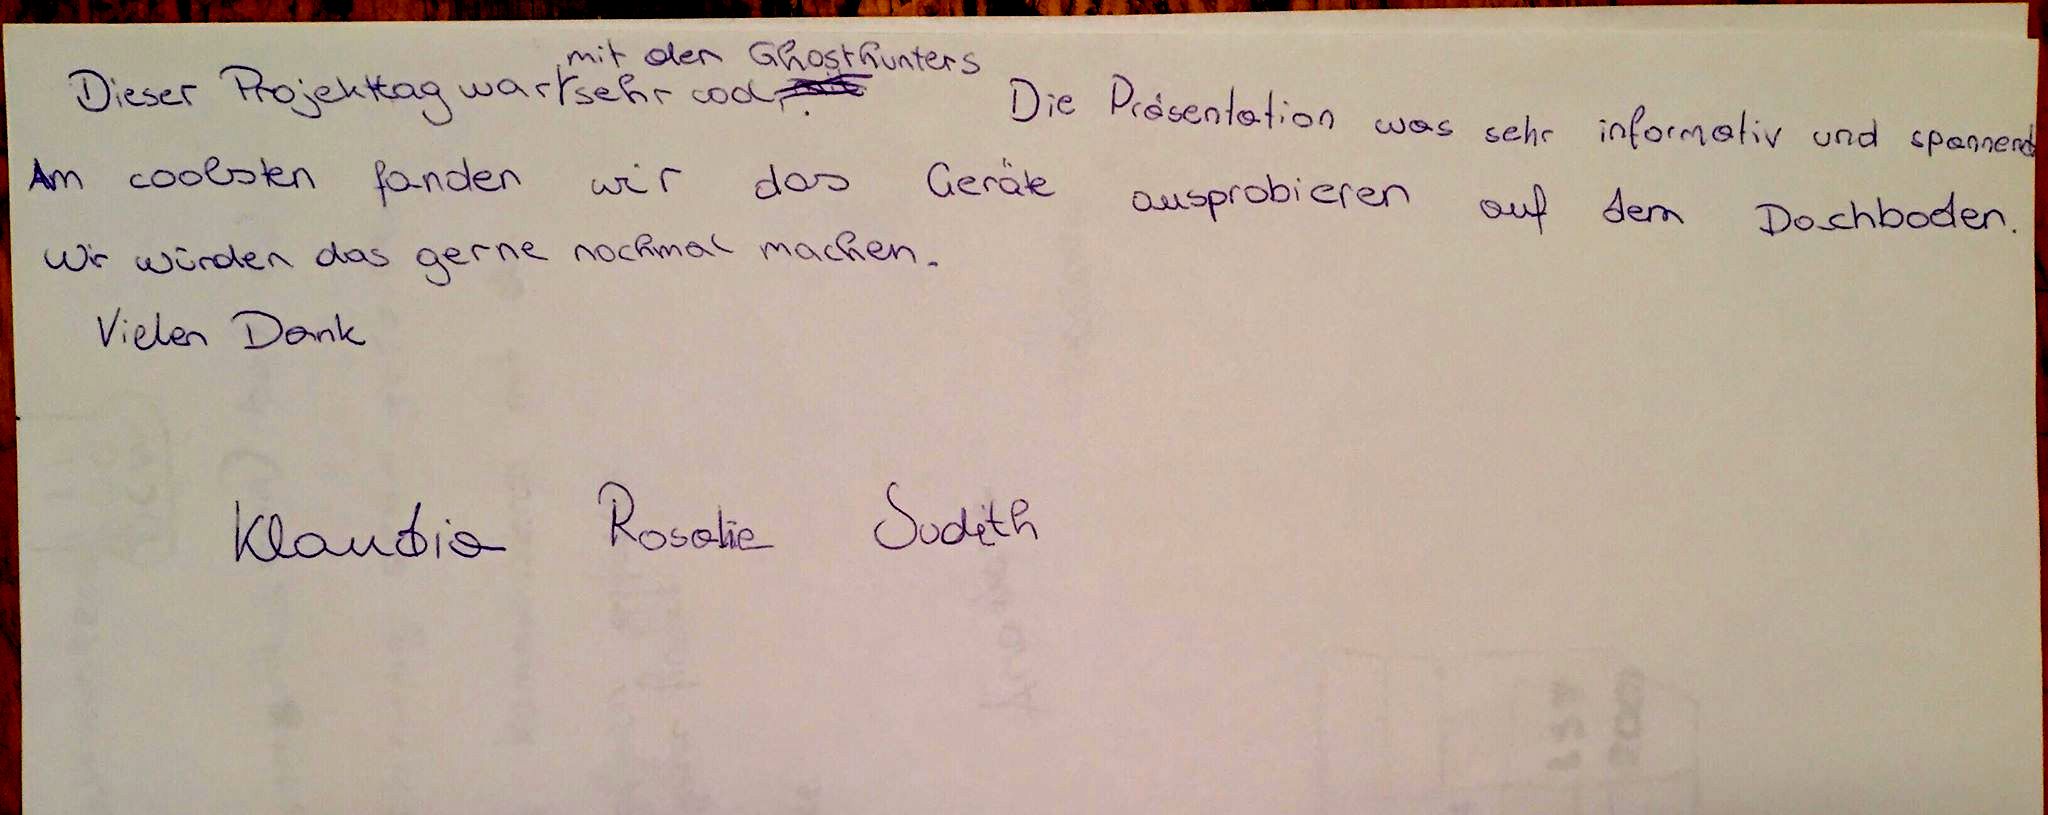 Dieser Projekttag war mit den Ghosthunters sehr cool. Die Präsentation was sehr informativ und spannend
Am coolsten fanden wir das Geräte ausprobieren auf dem Dachboden.
Wir würden das gerne nochmal machen.
Vielen Dank
Klaudia Rosalie Judith